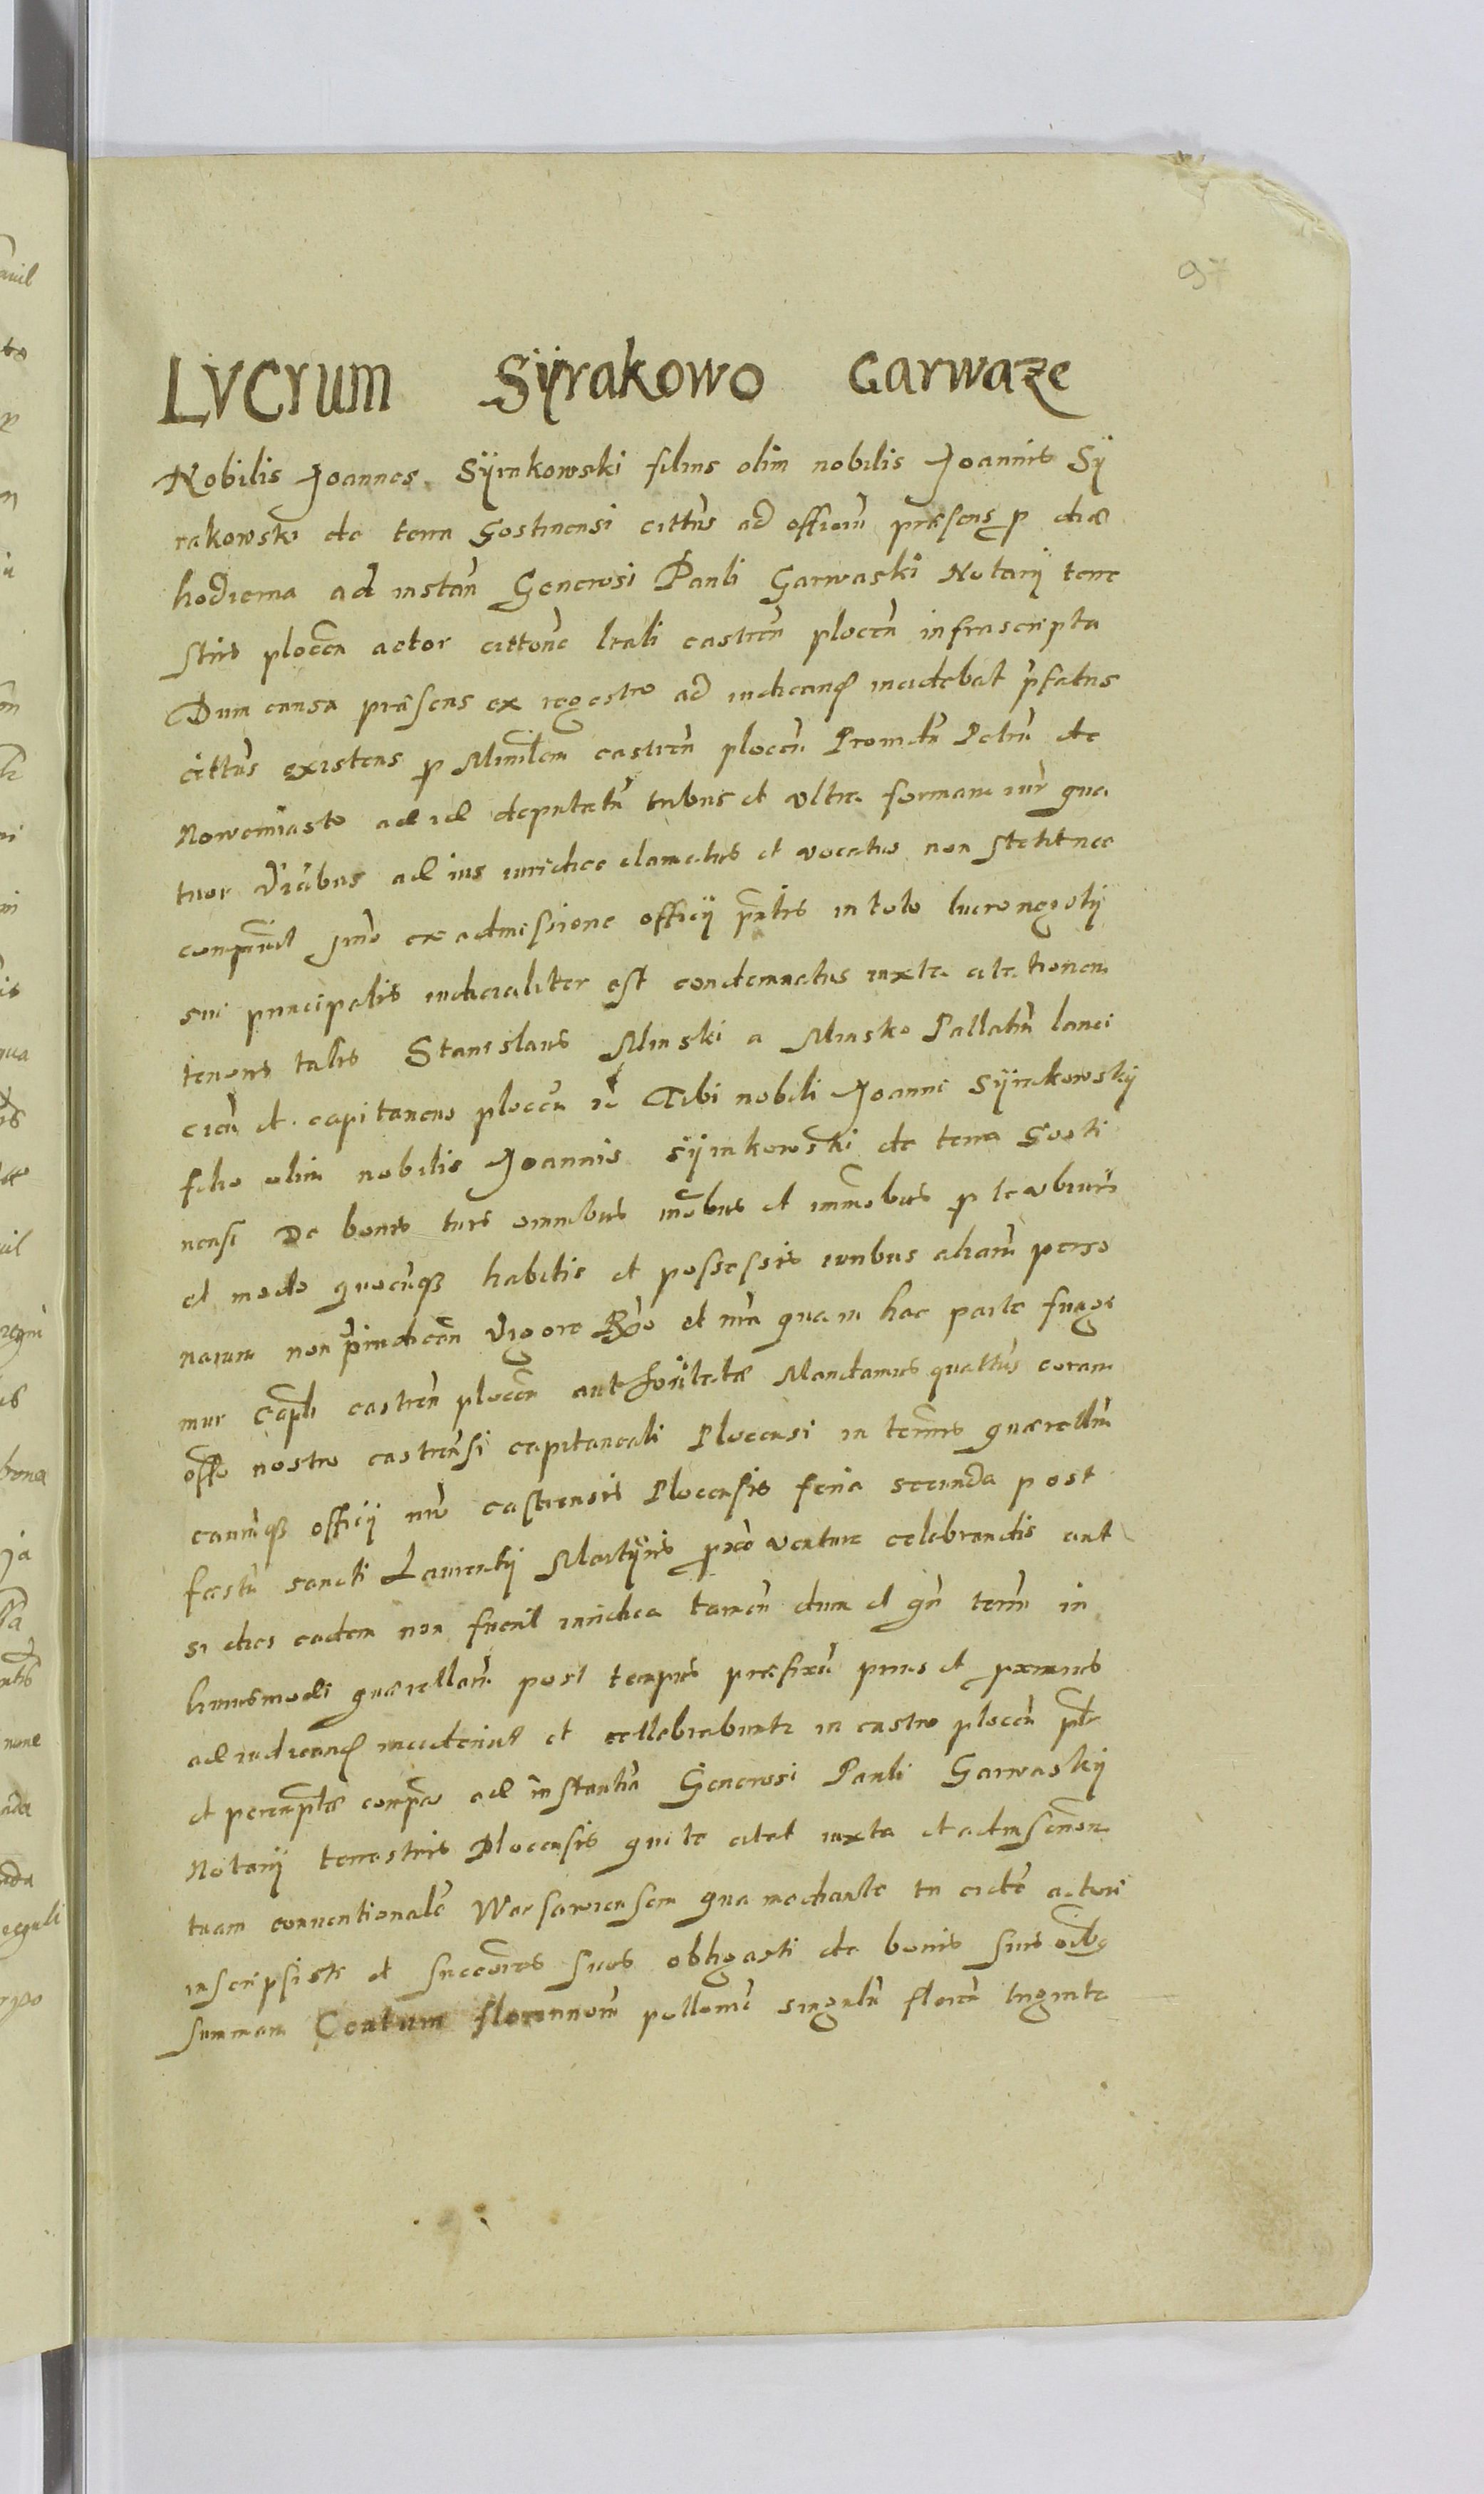 97
LVCrum Sÿrakowo Garwaze
Nobilis Joannes Sÿrakowski filius olim nobilis Joannis Sÿ
rakowski de terra Gostinensi cittus ad officiu praesens p die
hodierna ad instan Generosi Pauli Garwaski Notarij terre
stris plocen actor cittone lrali castren plocen infrascripta
Dum causa praesens ex regestro ad iudicand incidebat pfatus
cittus existens p Minilem castren plocen Prouidu Petru de
Nowemiasto ad id deputatu tribus et vltra formam iur qua
tuor vicibus ad ius iuridice clamatus et vocatus non stetit nec
comparuit imo ex admissione officij pntis in toto lucro negotij
sui principalis iudicialiter est condemnatus iuxta citationem
tenoris talis Stanislaus Minski a Minsko Pallatin lanci
cien et capitaneus plocen Tibi nobili Joanni Sÿrakowskij
filio olim nobilis Joannis Sÿrakowski de terra Gosti
nensi De bonis tuis omnibus mobus et immobus p te vbiuis
et modo quocunq habitis et possessis iuribus aliaru perso
narum non preiudican Vigore Rgo et nra qua in hac parte fungi
mur Capli castren plocen authoritate Mandamus quattus coram
offo nostro castrensi capitaneali Plocensi in termis quaerellar
cariumq officij nri castrensis Plocensis feria secunda post
festu sancti Laurentij Martÿris pxio venture celebrandis aut
si dies eadem non fuerit iuridica tamen dum et qn termi in
huiusmodi quaerellaru post tempus praefixu prius et proximius
ad iudicand incidenint et cellebrabuntr in castro plocen plr
et peremptie compas ad instantia Generosi Pauli Garwaskij
Notarij terrestris Plocensis qui te citat iuxta
tuam conuentionale Warsauiensem qua mediante tu eide actori
inscripsisti et succores suos obligasti de bonis suis oibg
summam Centum florennoru pollonie singulu floren triginta